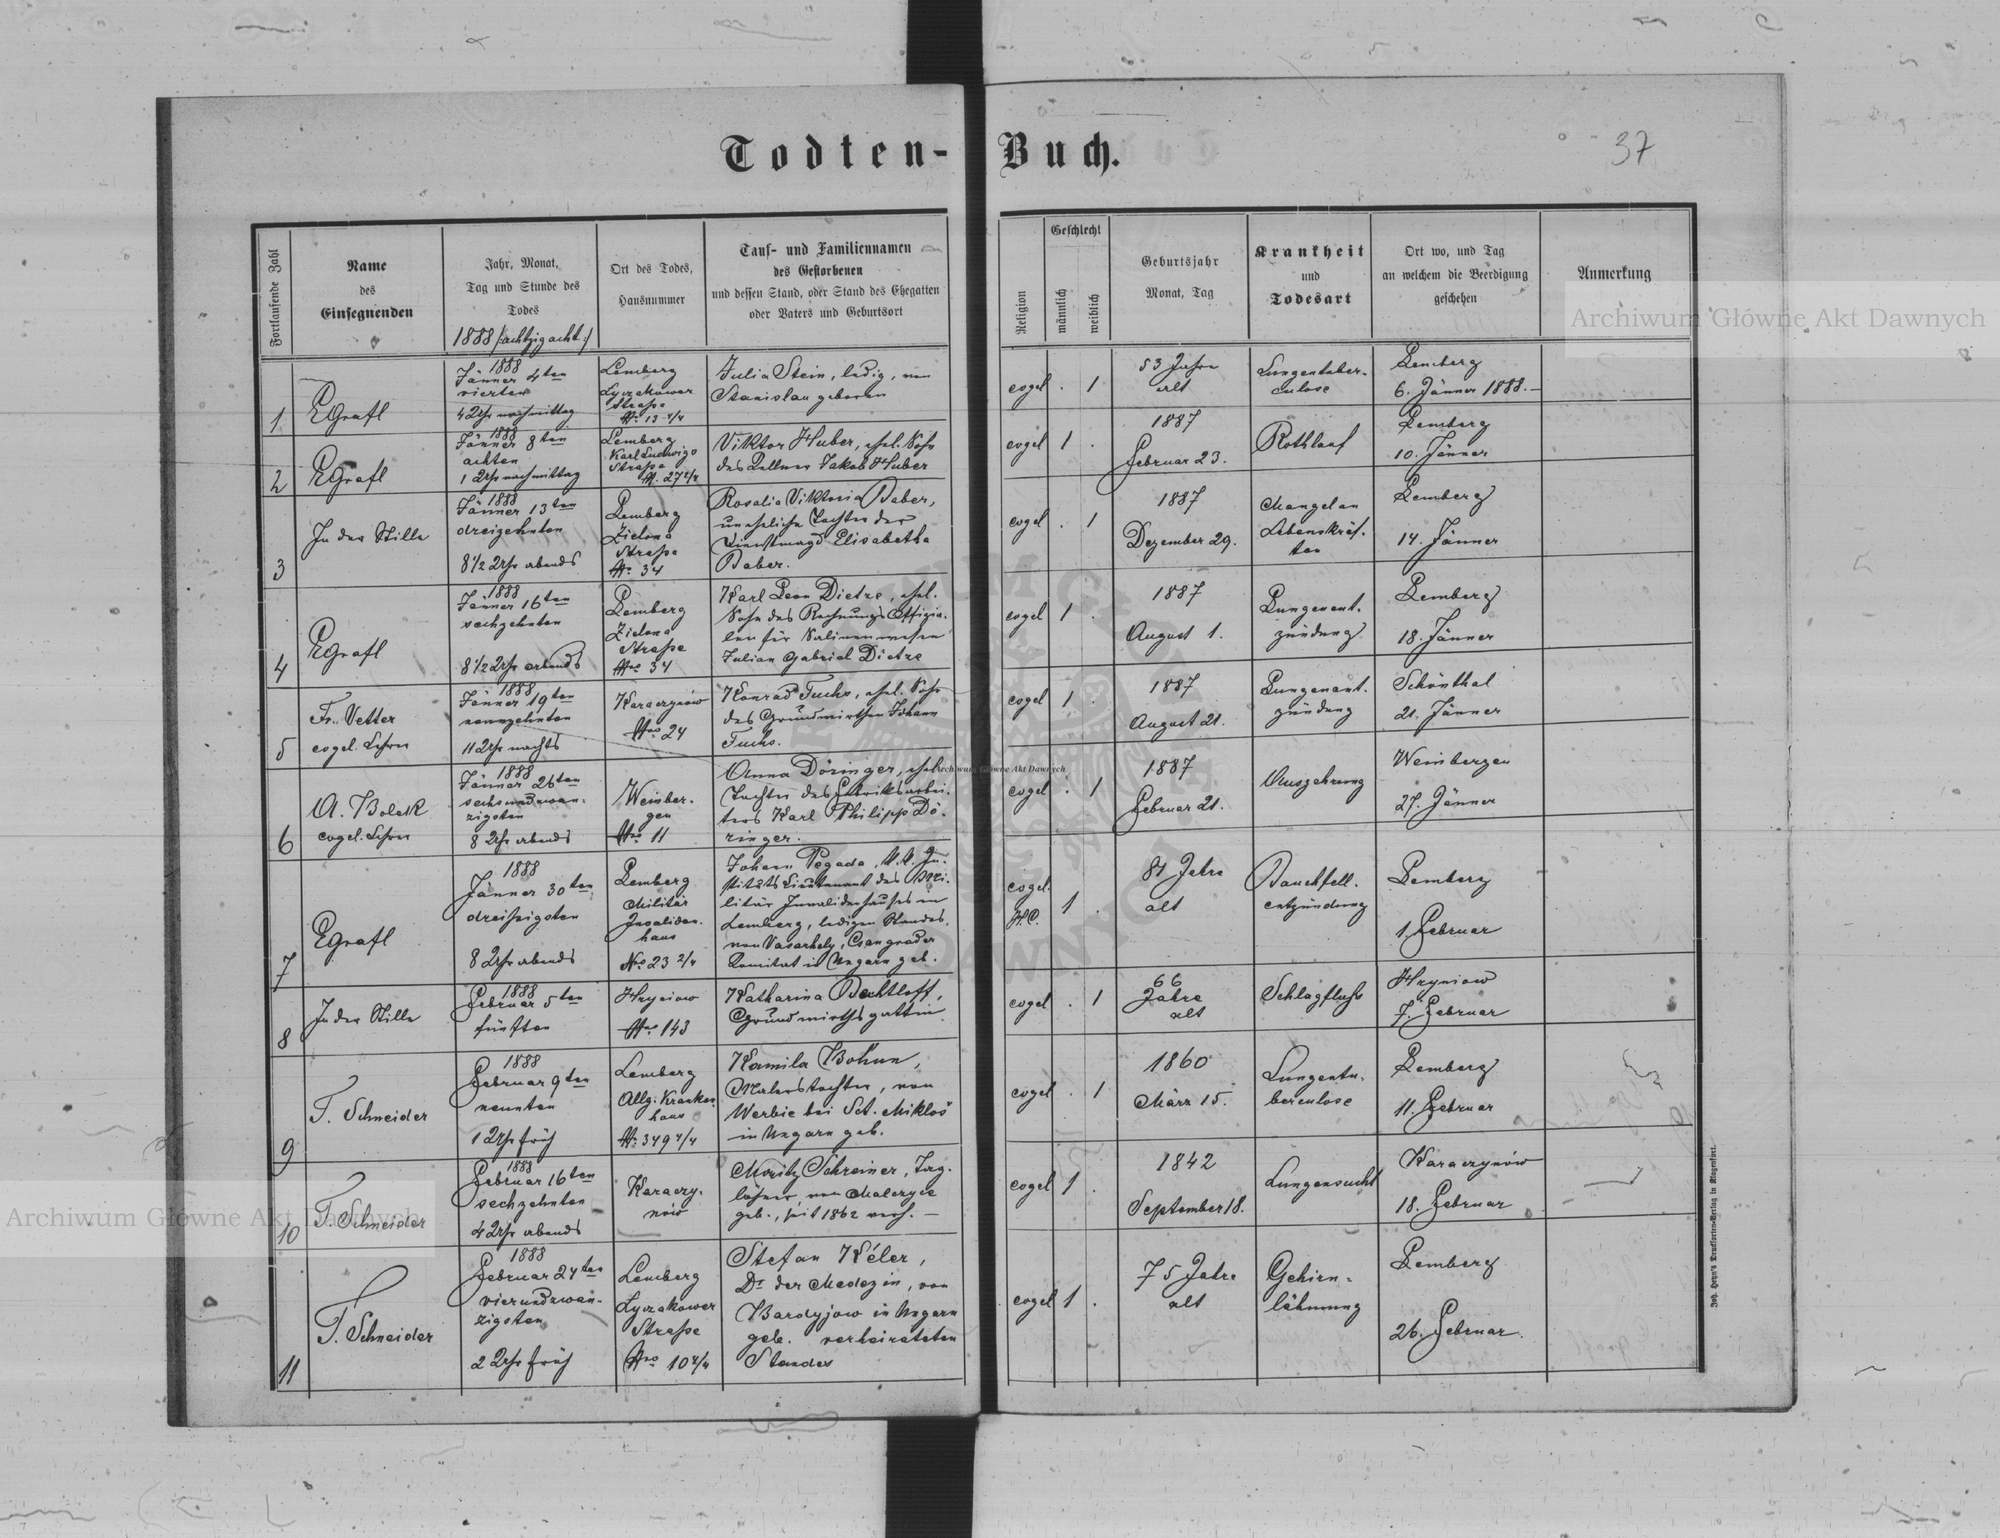 Todten-Buch.
37
Fortlaufende Zahl
Name
des
Einsegnenden
Jahr, Monat,
Tag und Stunde des
Todes
1888 /:achtzigacht:/
Ort des Todes,
Hausnummer
Tauf- und Familiennamen
des Gestorbenen
und dessen Stand, oder Stand des Ehegatten
oder Vaters und Geburtsort
Religion
Geschlecht
männlich
weiblich
Geburtsjahr
Monat, Tag
Krankheit
und
Todesart
Ort wo, und Tag
an welchem die Beerdigung
geschehen
Anmerkung
1
EGrafl
1888
Jänner 4ten
vierten
4 Uhr nachmittag
Lemberg
Lyczakower
Straße
No 13 4/4
Julia Stein, ledig, von
Stanislau geboren
evgel
. 1
53 Jahre
alt
Lungentuber-
culose
Lemberg
6. Jänner 1888.-
2
EGrafl
1888
Jänner 8ten
achten
1 Uhr nachmittag
Lemberg
Karl Ludwigs
Straße
N. 27 2/4
Viktor Huber, ehel. Sohn
des Kellners Jakob Huber
evgel
1 .
1887
Februar 23.
Rothlauf
Lemberg
10. Jänner
3
In der Stille
1888
Jänner 13ten
dreizehnten
8 1/2 Uhr abends
Lemberg
Zielona
Straße
No 34
Rosalia Viktoria Baber,
uneheliche Tochter der
Dienstmagd Elisabetha
Baber.
evgel
. 1
1887
Dezember 29.
Mangel an
Lebenskräf-
ten
Lemberg
14. Jänner
4
EGrafl
1888
Jänner 16ten
sechzehnten
8 1/2 Uhr abends
Lemberg
Zielona
Straße
Nro 34
Karl Leon Dietze, ehel.
Sohn des Rechnungs Offizia-
len für Salinenwesen
Julian Gabriel Dietze
evgel
1 .
1887
August 1.
Lungenent-
zündung
Lemberg
18. Jänner
5
Fr. Vetter
evgel. Lehrer
1888
Jänner 19ten
neunzehnten
11 Uhr nachts
Karaczynów
Nro 24
Konrad Fuchs, ehel. Sohn
des Grundwirthen Johann
Fuchs.
evgel
1 .
1887
August 21.
Lungenent-
zündung
Schönthal
21. Jänner
6
A. Bolek
evgel. Lehrer
1888
Jänner 26ten
sechsundzwan-
zigsten
8 Uhr abends
Weinber-
gen
Nro 11
Anna Döringer, ehel.
Tochter des Fabriksarbei-
ters Karl Philipp Dö-
ringer.
evgel
. 1
1887
Februar 21.
Auszehrung
Weinbergen
27. Jänner
7
EGrafl
1888
Jänner 30ten
dreißigsten
8 Uhr abends
Lemberg
Militär
Invaliden-
haus
No 23 2/4
Johann Pogada, k.k. In-
stituts Lieutenant des Mi-
litär Invalidenhauses in
Lemberg, ledigen Standes,
von Vasarhely, Csongrader
Komitat in Ungarn geb.
evgel.
H.C.
1 .
81 Jahre
alt
Bauchfell-
entzündung
Lemberg
1. Februar
8
In der Stille
1888
Februar 5ten
fünften
Hryniow
Nro 143
Katharina Bechtloff,
Grundwirthsgattin
evgel
. 1
66
Jahre
alt
Schlagfluß
Hryniow
7. Februar
9
T. Schneider
1888
Februar 9ten
neunten
1 Uhr früh
Lemberg
Allg. Kranken
haus
No 349 4/4
Kamila Bohun,
Malerstochter, von
Werbie bei Sct. Mikloš
in Ungarn geb.
evgel
. 1
1860
März 15.
Lungentu-
berculose
Lemberg
11. Februar
10
T. Schneider
1888
Februar 16ten
sechzehnten
4 Uhr abends
Karaczy-
nów
Moritz Schreiner, Tag-
löhner, von
geb., seit 1862 verh. -
evgel
1 .
1842
September 18.
Lungensucht
Karaczynów
18. Februar
11
T. Schneider
1888
Februar 24ten
vierundzwan-
zigsten
2 Uhr früh
Lemberg
Lyczakower
Straße
Nro 10 4/4
Stefan Kéler,
Dr der Medezin, von
Bardyjow in Ungarn
geb. verheirateten
Standes
evgel
1 .
75 Jahre
alt
Gehirn-
lähmung
Lemberg
26. Februar.
Joh. Heyn's Drucksorten-Verlag in Klagenfurt.
Archiwum Główne Akt Dawnych
Archiwum Główne Akt Dawnych
Archiwum Główne Akt Dawnych